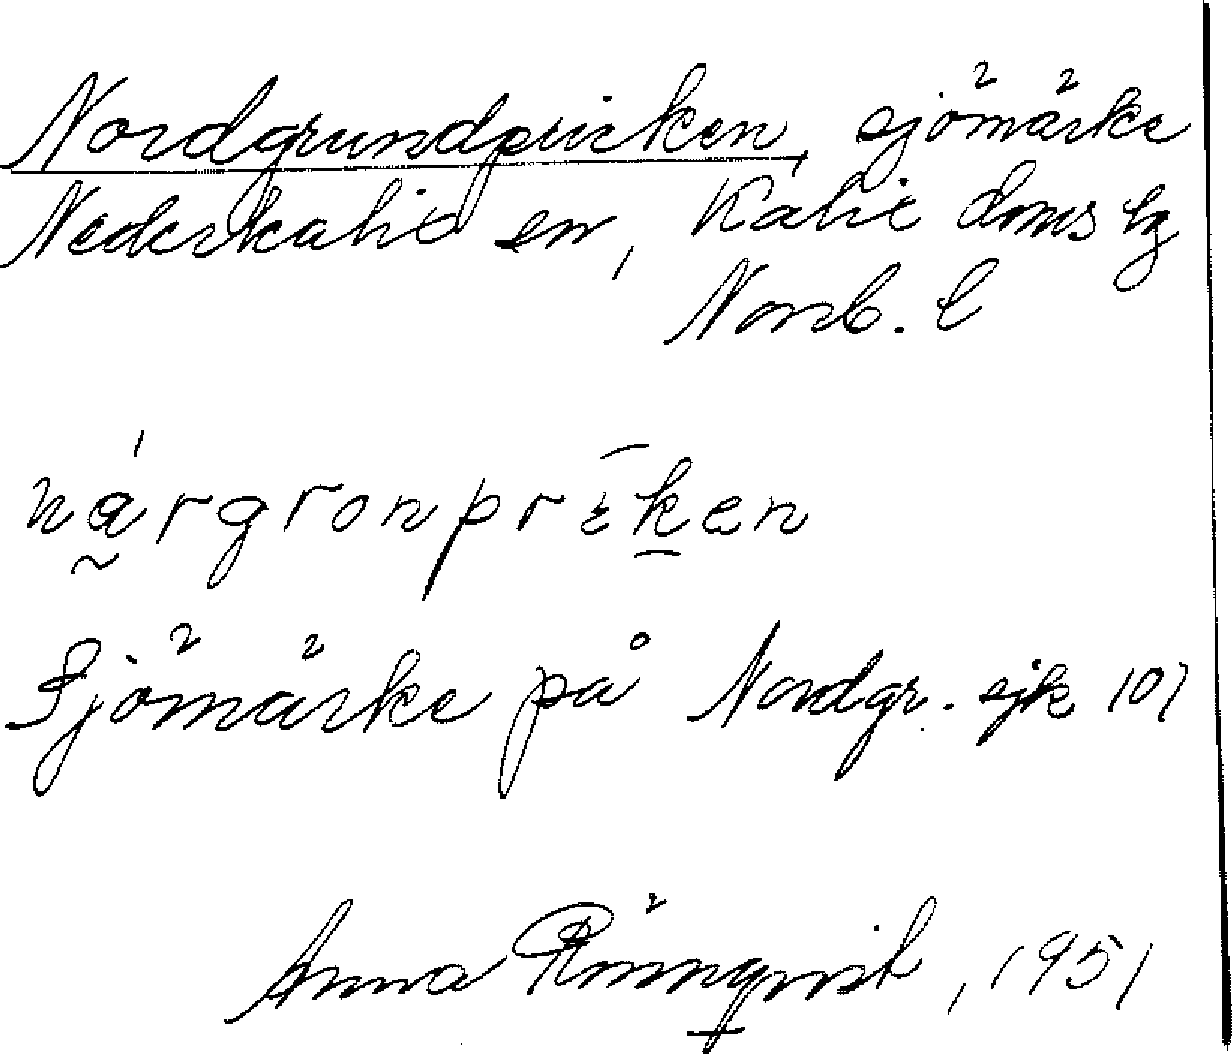 Nordgrundpricken, sjömärke
Nederkalix sn, Kalix doms hg
Norrb. l
nárgronpri̅ken
Sjömärke på Nordgr. sjk 107
Anna Rönnqvist, 1951